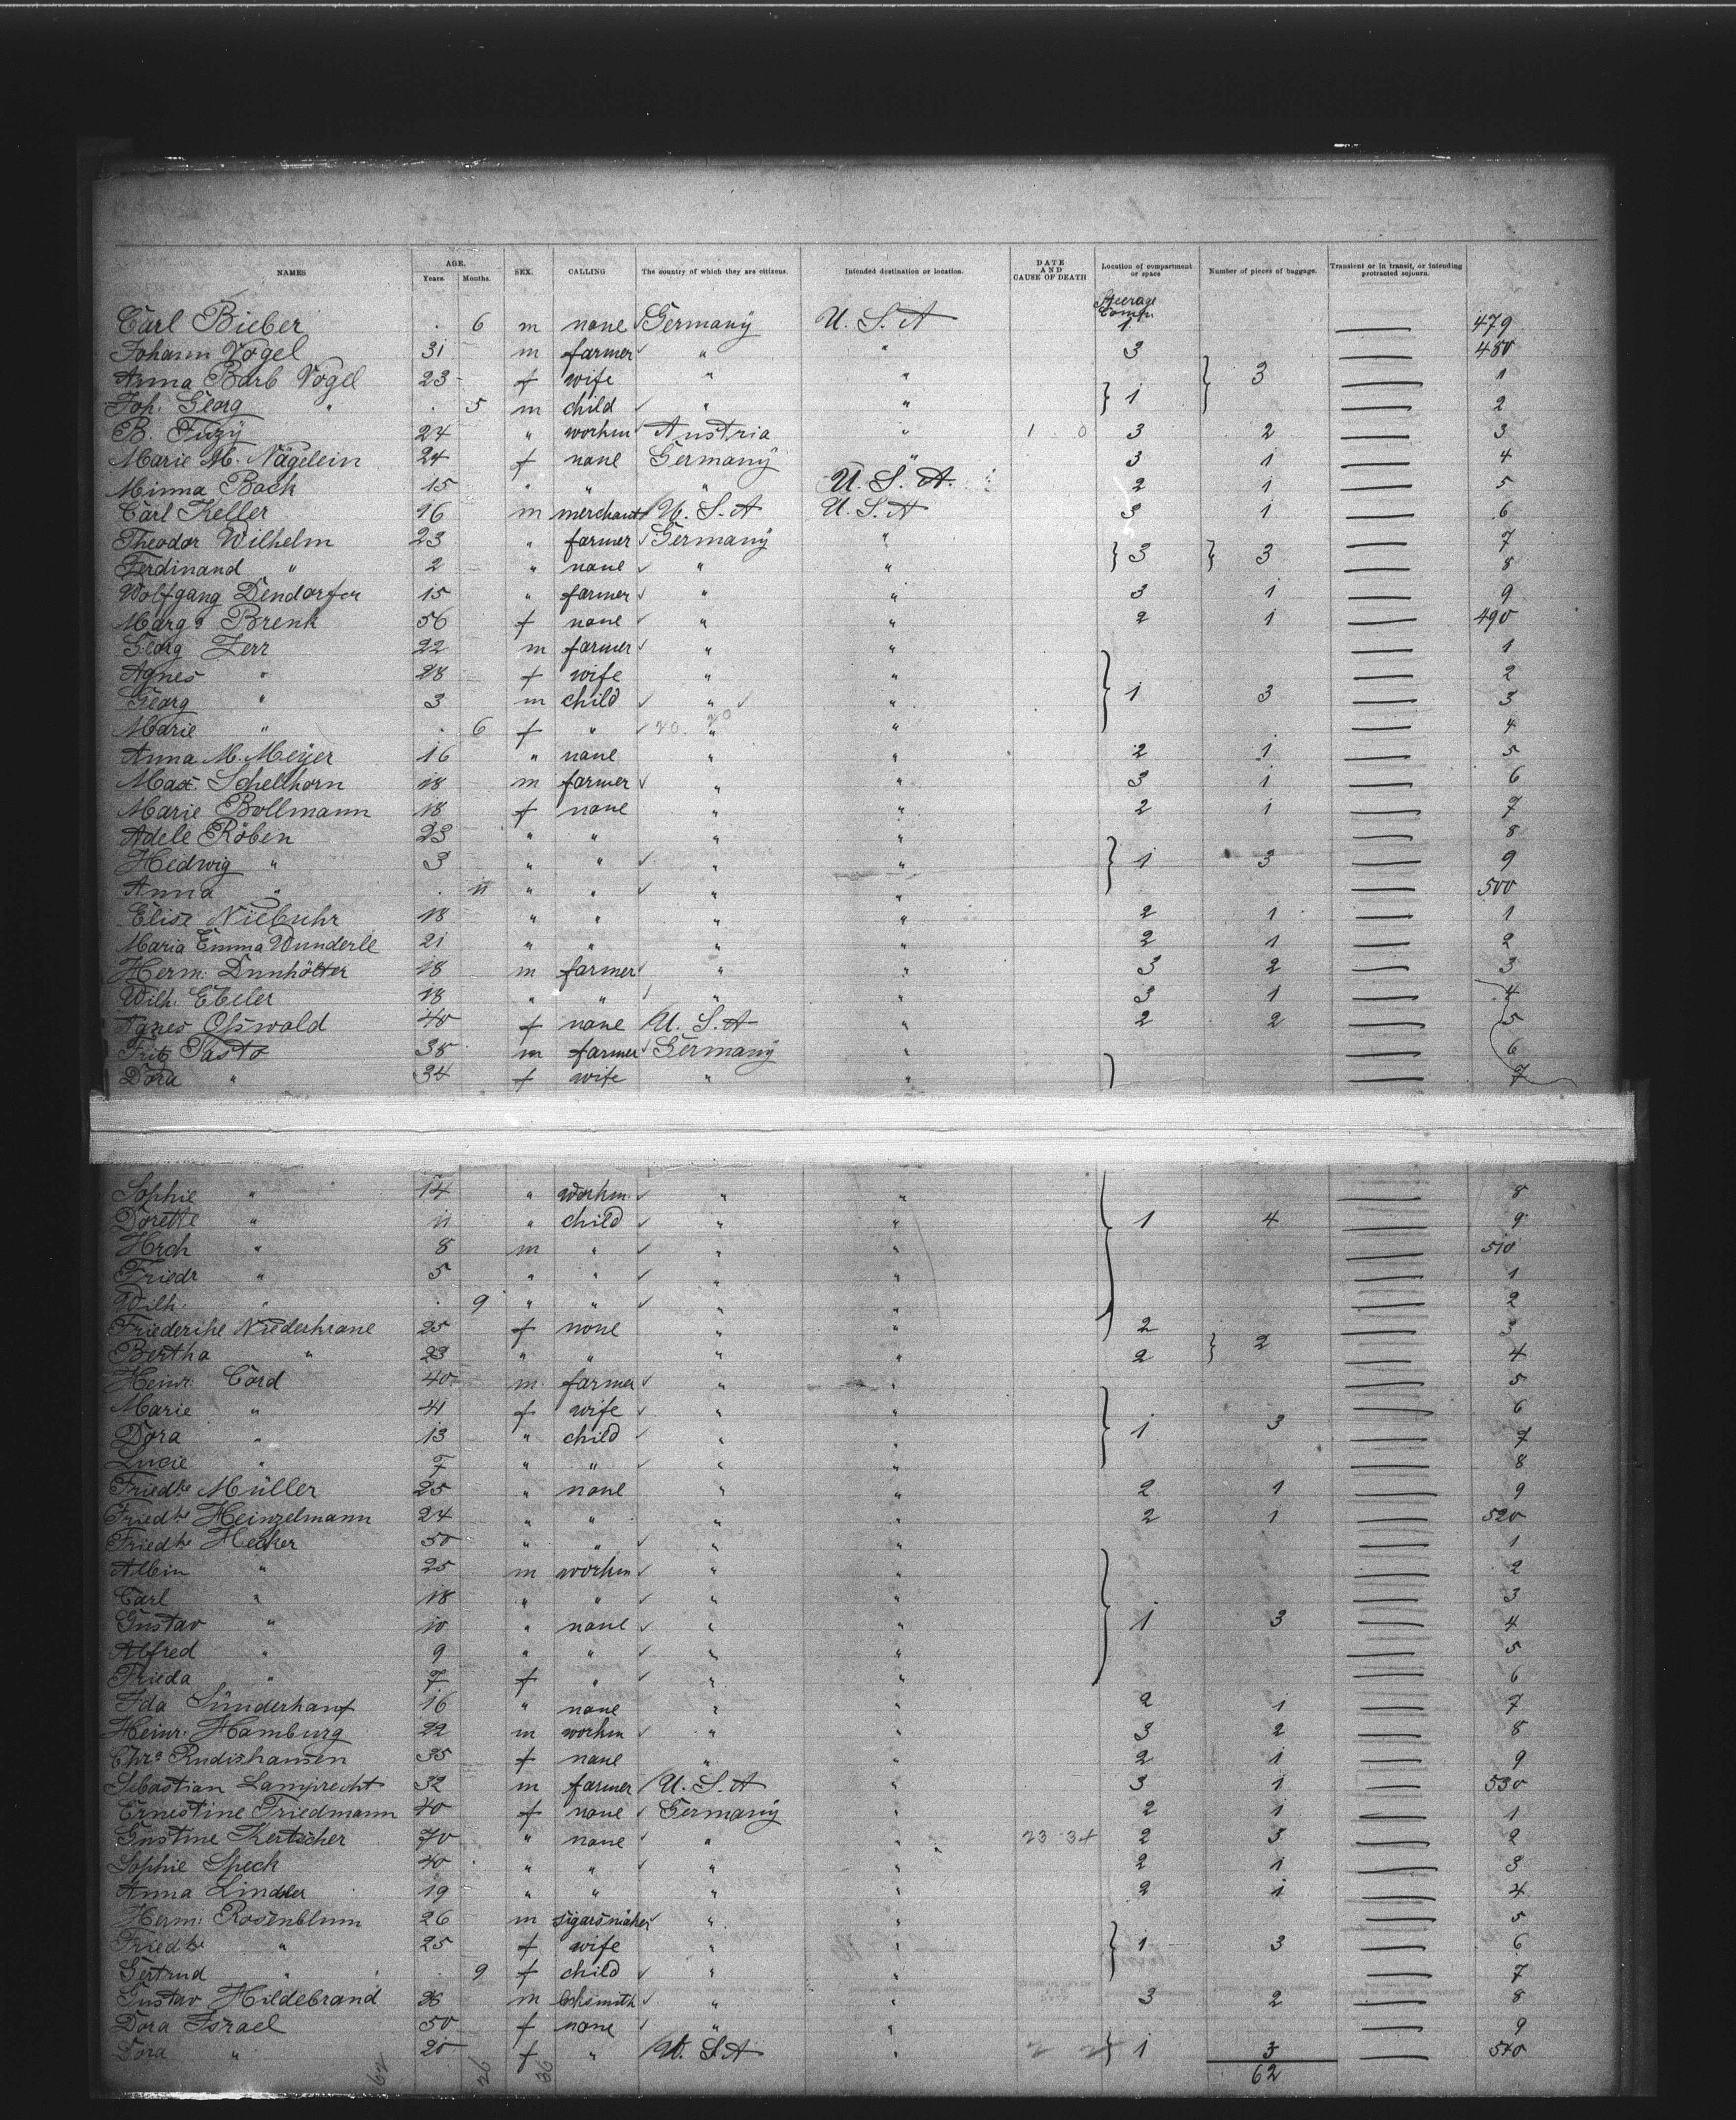 NAMES AGE. Years. Months. SEX. CALLING The country of which they are citizens. Intended destination or location. DATE AND CAUSE OF DEATH Location of compartment or space Number of pieces of baggage. Transient or in transit, or intending protracted sojourn.
Steerage Comptr.
Carl Bieber . 6 m none Germany U. S. A 1 — 479
Johann Vogel 31 m farmer " " 3 — 480
Anna Barb Vogel 23 f wife " " 3 — 1
Joh. Georg " . 5 m child " " 1 — 2
B. Fuzy 24 " workm Austria " 1 0 3 2 — 3
Marie M. Nägelein 24 f none Germany " 3 1 — 4
Minna Bach 15 " " " U. S. A. 2 1 — 5
Carl Keller 16 m merchant U. S. A U. S. A 3 1 — 6
Theodor Wilhelm 23 " farmer Germany " 3 3 — 7
Ferdinand " 2 " none " " — 8
Wolfgang Dendorfer 15 " farmer " " 3 1 — 9
Marg. Brenk 56 f none " " 2 1 — 490
Georg Zerr 22 m farmer " " — 1
Agnes " 28 f wife " " — 2
Georg " 3 m child " " 1 3 — 3
Marie " . 6 f " 20 20 " " — 4
Anna M. Meyer 16 " none " " 2 1 — 5
Max Schellhorn 18 m farmer " " 3 1 — 6
Marie Bollmann 18 f none " " 2 1 — 7
Adele Röben 23 " " " " — 8
Hedwig " 3 " " " " 1 3 — 9
Anna " . 11 " " " " — 500
Elise Niebuhr 18 " " " " 2 1 — 1
Maria Emma Wunderle 21 " " " " 2 1 — 2
Herm. Dunhölter 18 m farmer " " 3 2 — 3
Wilh. Ebeler 18 " " " " 3 1 — 4
Agnes Oßwald 40 f none U. S. A " 2 2 — 5
Fritz Tasto 38 m farmer Germany " — 6
Dora " 34 f wife " " — 7
Sophie " 14 " workm " " — 8
Dorette " 11 " child " " 1 4 — 9
Hrch " 8 m " " " — 510
Friedr " 5 " " " " — 1
Wilh. " . 9 " " " " — 2
Friederike Niederkrane 25 f none " " 2 — 3
Bertha " 23 " " " " 2 2 — 4
Heinr. Cord 40 m farmer " " — 5
Marie " 41 f wife " " — 6
Dora " 13 " child " " 1 3 — 7
Lucie " 7 " " " " — 8
Friedke Müller 25 " none " " 2 1 — 9
Friedke Heinzelmann 24 " " " " 2 1 — 520
Friedke Hecker 50 " " " " — 1
Albin " 25 m workm " " — 2
Carl " 18 " " " " — 3
Gustav " 10 " none " " 1 3 — 4
Alfred " 9 " " " " — 5
Frieda " 7 f " " " — 6
Ida Sünderhauf 16 " none " " 2 1 — 7
Heinr. Hamburg 22 m workm " " 3 2 — 8
Chra Rudishausen 35 f none " " 2 1 — 9
Sebastian Lamprecht 32 m farmer U. S. A " 3 1 — 530
Ernestine Friedmann 40 f none Germany " 2 1 — 1
Gustine Kertscher 70 " none " " 23 34 2 3 — 2
Sophie Speck 40 " " " " 2 1 — 3
Anna Lindler 19 " " " " 2 1 — 4
Herm. Rosenblum 26 m sigarsmaker " " — 5
Friedke " 25 f wife " " 1 3 — 6
Gertrud " . 9 f child " " — 7
Gustav Hildebrand m loksmith " " 3 2 — 8
Dora Israel 50 f none " " — 9
Dora " 20 f " U. S. A " 1 3 — 540
62 26 36 62